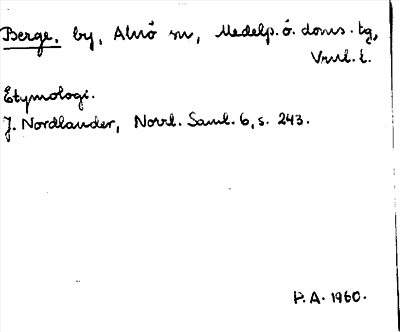 Berge. by, Alnö sn, Medelp. ö. doms. tg,
Vnl. l.
Etymologi.
J. Nordlander, Norrl. Saml. 6, s. 243.
P. A. 1960.